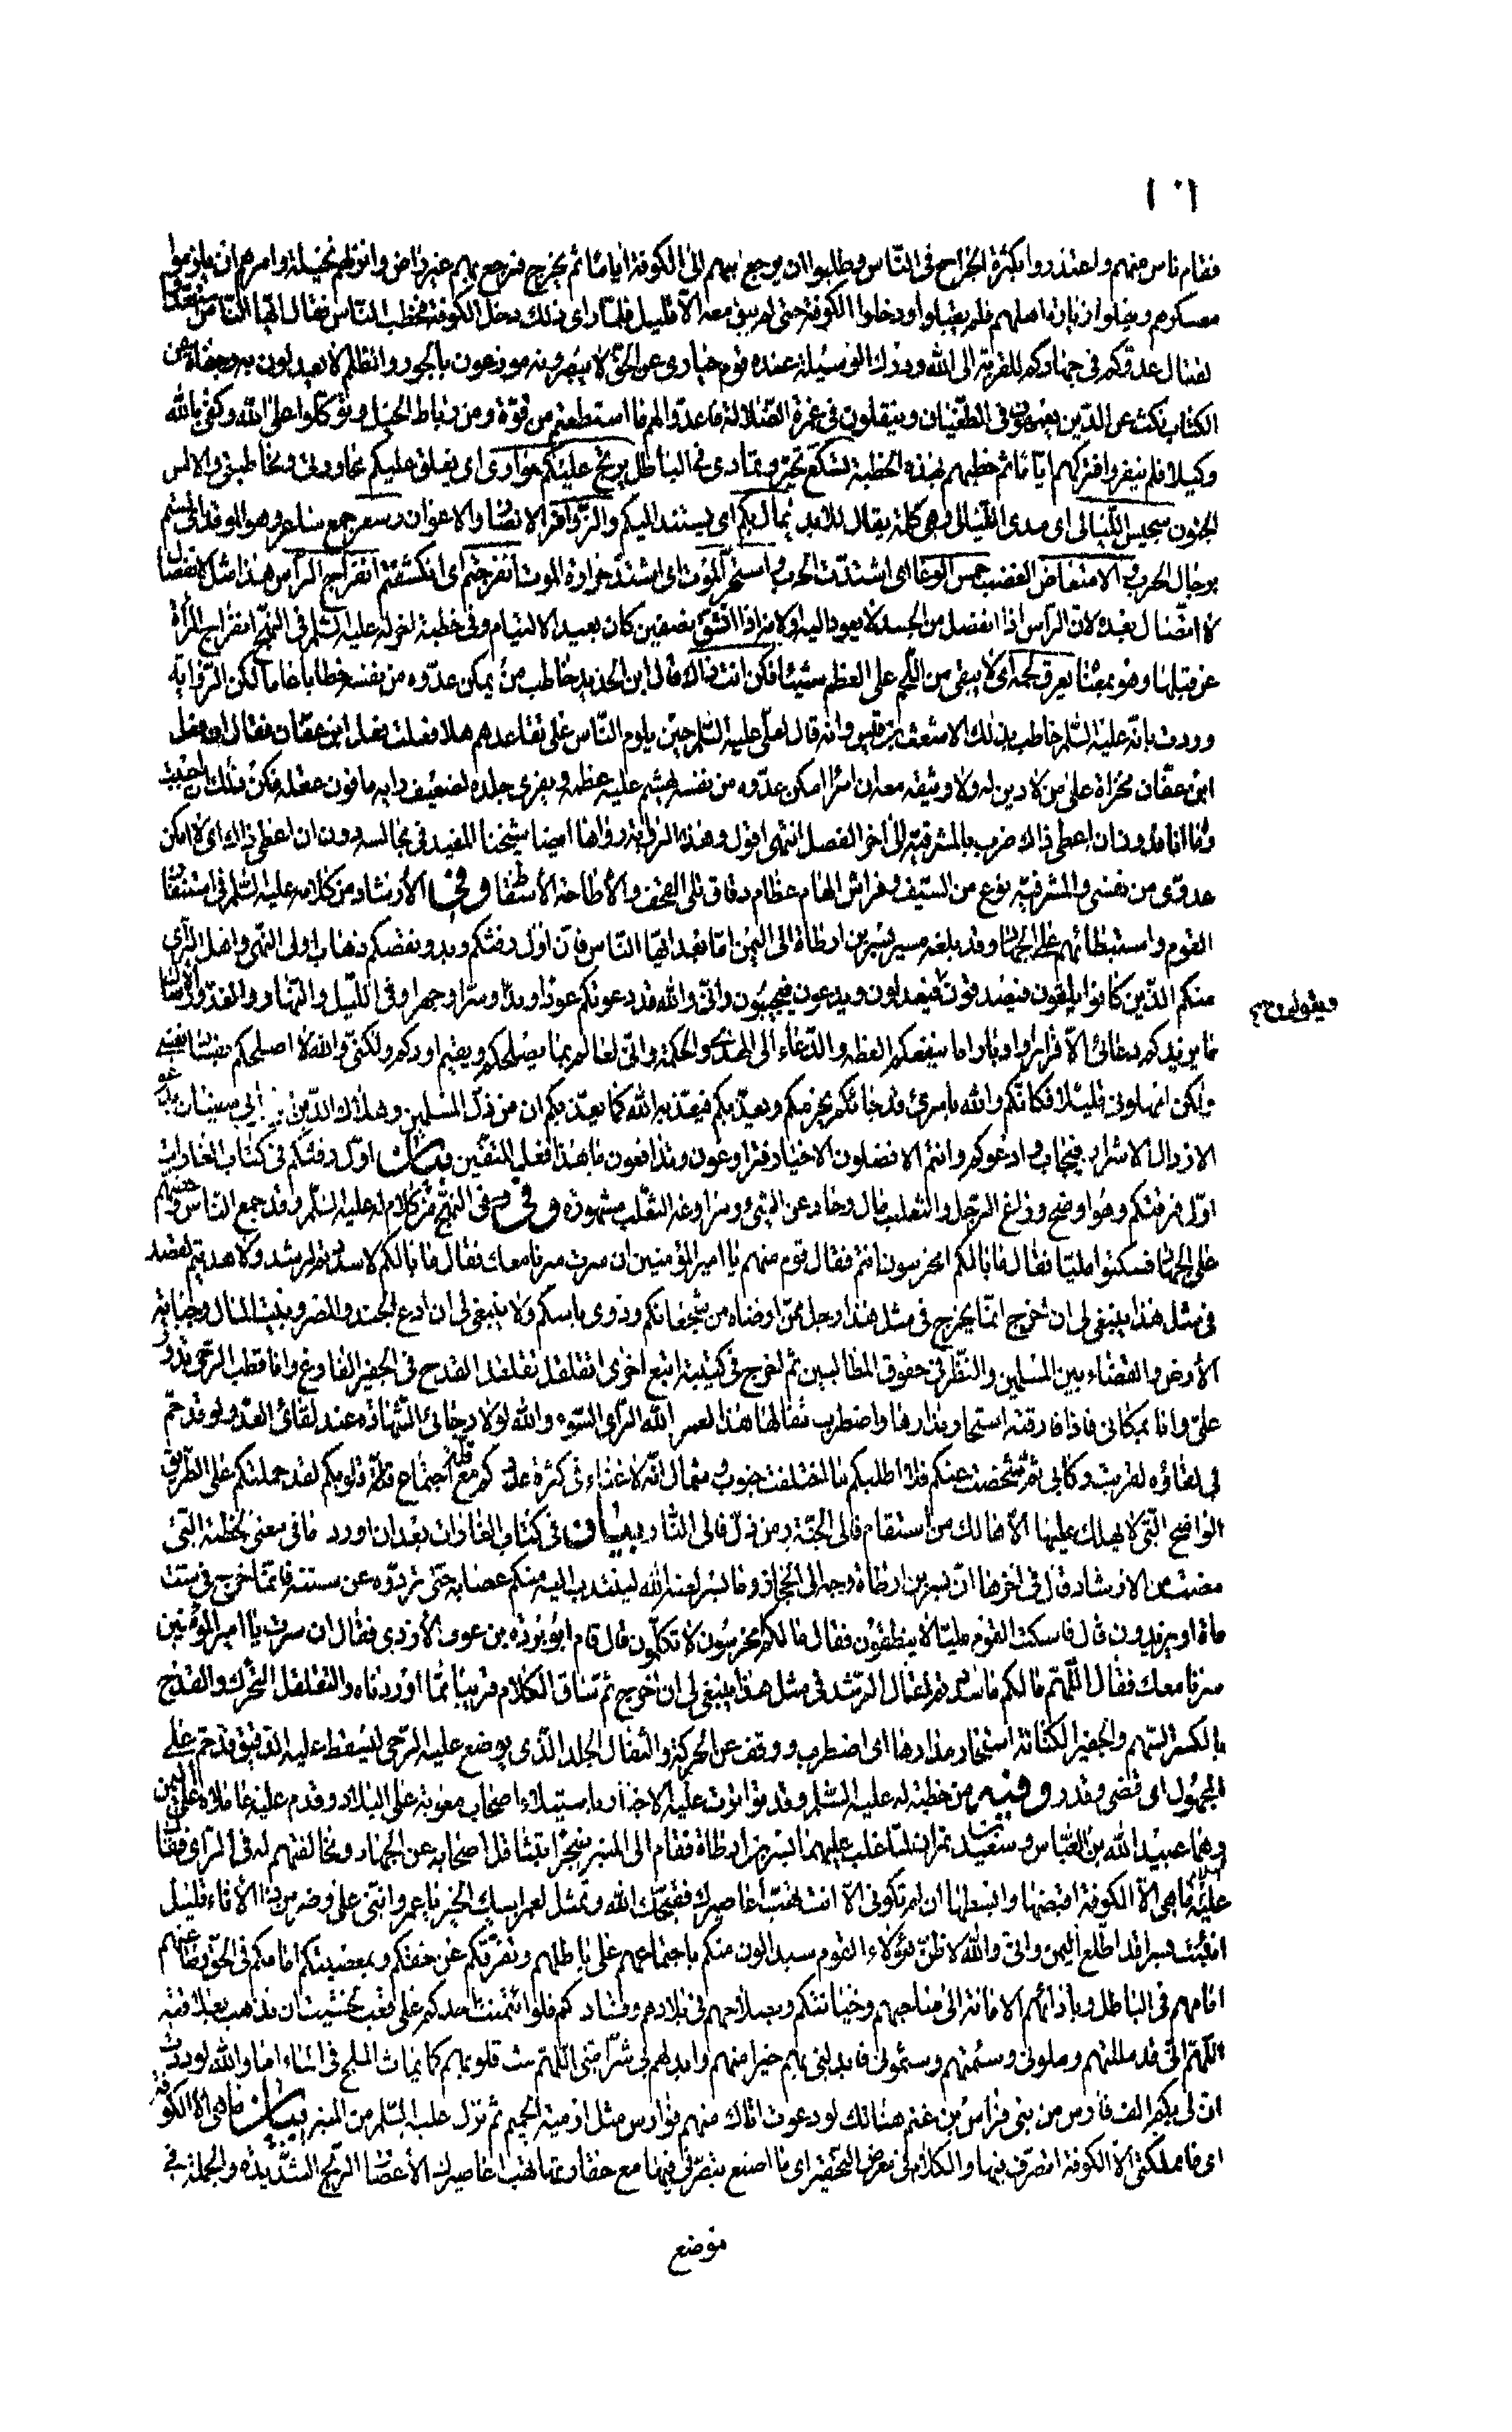 ١٠٦
فقام ناس منهم واعتذروا بكثرة الجراح في النّاس وطلبوا ان يرجع بهم الى الكوفة ايّاما ثم يخرج فرجع بهم غير راض وانزلهم نخيلة وامرهم ان يلزموا
معسكرهم ويقلوا زيارة اهلهم فلم يقبلوا ودخلوا الكوفة حتى لم يبق معه الّا قليل فلمّا راى ذلك دخل الكوفة فخطب النّاس فقال ايّها النّاس استعدّوا
لقتال عدوّكم في جهادكم القربة الى الله ودرك الوسيلة عنده قوم حيارى عن الحقّ لا يبصرونه موزعون بالجور والظلم لا يعدلون به وجفاة عن
الكتاب نكث عن الدّين يعمهون في الطّغيان ويتقلّبون في غمرة الضّلالة فاعدّوا لهم ما استطعتم من قوّة ومن رباط الخيل وتوكّلوا على الله وكفى بالله
وكيلا فلم ينفروا فتركهم ايّاما ثم خطبهم بهذه الخطبة تسكّع تحيّر وتمادى في الباطل يرتج عليكم حوارى اى يغلق عليكم محاورتى ومخاطبتى والالس
الجنون سجيس اللّيالى اى مدى اللّيالى وهى كلمة يقال للابد يمال بكم اى يستند اليكم والزّوافر الانصار والاعوان وسعر جمع ساعر وهو الوقد اى لستم
برجال الحرب والامتعاض الغضب حمس الوغا اى اشتدّت الحرب واستحرّ الموت اى اشتدّ حرارة الموت انفرجتم اى انكشفتم انفراج الراس هذا مثل لانفصال
لا اتّصال بعده لانّ الرّاس اذا انفصل من الجسد لا يعود اليه ولانه اذا انشقّ بنصفين كان بعيد الالتيام وفي خطبة اخرى له عليه السّلم في النّهج انفراج المرأة
عن قبلها وهو بمعناه يعرق لحمه اى لا يبقى من اللّحم على العظم شيئا فكن انت ذاك قال ابن الحديد خاطب من يمكن عدوّه من نفسه خطابا عاما لكن الرّواية
وردت بانّه عليه السّلم خاطب بذلك الاشعث بن قيس وانه قال لعلى عليه السّلم حين يلوم النّاس على تقاعدهم هلا فعلت فعل ابن عفّان فقال ان فعل
ابن عفّان مخزاة على من لا دين له ولا وثيقة معه ان امرأ امكن عدوّه من نفسه يهشم عليه عظمه ويفرى جلده لضعيف رايه مأفون عقله فكن ذلك ان احببت
وامّا انا فدون ان اعطى ذاك ضرب بالمشرفيّة الى اخر الفصل انتهى اقول وهذه الرواية رواها ايضا شيخنا المفيد في مجالسه دون ان اعطى ذاك اى لا امكن
عدوّى من نفسى والمشرفيّه نوع من السّيف وفراش الهام عظام دقاق تلى القحف والاطاحة الاسقاط وفي الارشاد من كلامه عليه السّلم في استنفار
القوم واستبطائهم على الجهاد وقد بلغه مسير بسر بن ارطاة الى اليمن امّا بعد ايّها النّاس فانّ اوّل رفثكم وبدو نقضكم ذهاب اولى النّهى واهل الرّاى
منكم الذّين كانوا يلقون فيصدقون ويقولون فيعدلون ويدعون فيجيبون وانّى والله قد دعوتكم عودا وبدا وسرّا وجهرا وفي اللّيل والنّهار والغدوّ والاصال
ويقولون
فما يزيدكم دعائى الّا فرارا وادبارا اما ينفعكم العظة والدّعاء الى الهدى والحكمة وانّى لعالم بما يصلحكم ويقيم اودكم ولكنّى والله لا اصلحكم بفساد نفسى
ولكن امهلونى قليلا فكانّكم والله بامرئ قد جاءكم يحرمكم ويعذّبكم فيعذّبه الله كما يعذّبكم ان من ذلّ المسلمين وهلاك الدّين ان ابن ابى سفيان يدعو
الارذال الاشرار فيجاب وادعوكم وانتم الافضلون الاخيار فتراوغون وتدافعون ما هذا فعل المتّقين بيان اوّل رفثكم في كتاب الغارات
اوّل فرقتكم وهو اوضح وراغ الرّجل والثعلب مال وحاد عن الشئ ومراوغة الثّعلب مشهورة وفيه في النّهج من كلام له عليه السّلم وقد جمع النّاس وحضّهم
على الجهاد فسكتوا مليّا فقال ما بالكم امخرسون انتم فقال قوم منهم يا امير المؤمنين ان سرت سرنا معك فقال ما بالكم لا سدّدتم لرشد ولا هديتم لقصد
في مثل هذا ينبغى لى ان اخرج انّما يخرج في مثل هذا رجل ممّن ارضاه من شجعانكم وذوى باسكم ولا ينبغى لى ان ادع الجند والمصر وبيت المال وجباية
الارض والقضاء بين المسلمين والنّظر في حقوق المطالبين ثم اخرج في كتيبة اتبع اخرى اتقلقل تقلقل القدح في الجفير الفارغ وانا قطب الرّحى تدور
علىّ وانا بمكانى فاذا فارقته استحار مدارها واضطرب ثفالها هذا لعمر الله الرّاى السّوء والله لولا رجائى الشّهادة عند لقائى العدوّ لو قد حمّ
لى لقاؤه لقرّبت ركابى ثم شخصت عنكم فلا اطلبكم ما اختلفت جنوب وشمال انّه لا غناء في كثرة عددكم مع قلّة اجتماع قلوبكم لقد حملتكم على الطّريق
الواضح الّتى لا يهلك عليها الّا هالك من استقام فالى الجنّة ومن زلّ فالى النّار بيان في كتاب الغارات بعد ان اورد ما في معنى الخطبة الّتى
مضت من الارشاد قال في اخرها انّ بسر بن ارطاة وجه الى الحجاز وما بسر لعنه الله لينتدب اليه منكم عصابة حتّى تردّوه عن سننه فانّما خرج في ستّ
مأة او يزيدون قال فاسكت القوم مليّا لا ينطقون فقال ما لكم مخرسون لا تكلّمون قال قام ابو بردة بن عوف الازدى فقال ان سرت يا امير المؤمنين
سرنا معك فقال اللّهمّ ما لكم ما سدّدتم لمقال الرّشد في مثل هذا ينبغى لى ان اخرج ثم ساق الكلام قريبا ممّا اوردناه والتقلقل التّحرّك والقدح
بالكسر السّهم والجفير الكنانة استحار مدارها اى اضطرب ووقف عن الحركة والثفال الجلد الّذى يوضع عليه الرّحى ليسقط عليه الدّقيق قد حمّ على
المجهول اى قضى وقدر وفيه من خطبة له عليه السّلم وقد تواترت عليه الاخبار باستيلاء اصحاب معوية على البلاد وقدم عليه عاملاه على اليمن
وهما عبيد الله بن العبّاس وسعيد بن نمران لمّا غلب عليهما بسر بن ارطاة فقام الى المنبر ضجرا بتثاقل اصحابه عن الجهاد ومخالفتهم له في الرّاى فقال
عليه السّلام ما هى الّا الكوفة اقبضها وابسطها ان لم تكونى الّا انت تهبّ اعاصيرك فقبّحك الله وتمثّل لعمر ابيك الخير يا عمرو انّنى على وضر من ذا الاناء قليل
انبئت بسرا قد اطّلع اليمن وانّى والله لاظنّ هؤلاء القوم سيدالون منكم باجتماعهم على باطلهم وتفرّقكم عن حقّكم وبمعصيتكم امامكم في الحقّ وطاعتهم
امامهم في الباطل وبادائهم الامانة الى صاحبهم وخيانتكم وبصلاحهم في بلادهم وفسادكم فلو ائتمنت احدكم على قعب لخشيت ان يذهب بعلاقته
اللّهمّ انّى قد مللتهم وملّونى وسئمتهم وسئمونى فابدلنى بهم خيرا منهم وابدلهم بى شرّا منّى اللّهمّ مث قلوبهم كما يماث الملح في الماء اما والله لوددت
انّ لى بكم الف فارس من بنى فراس بن غنم هنالك لو دعوت اتاك منهم فوارس مثل ارمية الحميم ثم نزل عليه السّلم من المنبر بيان ما هى الّا الكوفة
اى ما مملكتى الّا الكوفة اتصرّف فيها والكلام في معرض التّحقير اى ما اصنع بتصرّفى فيها مع حقارتها تهبّ اعاصيرك الاعصار الرّيح الشّديدة والجملة في
موضع